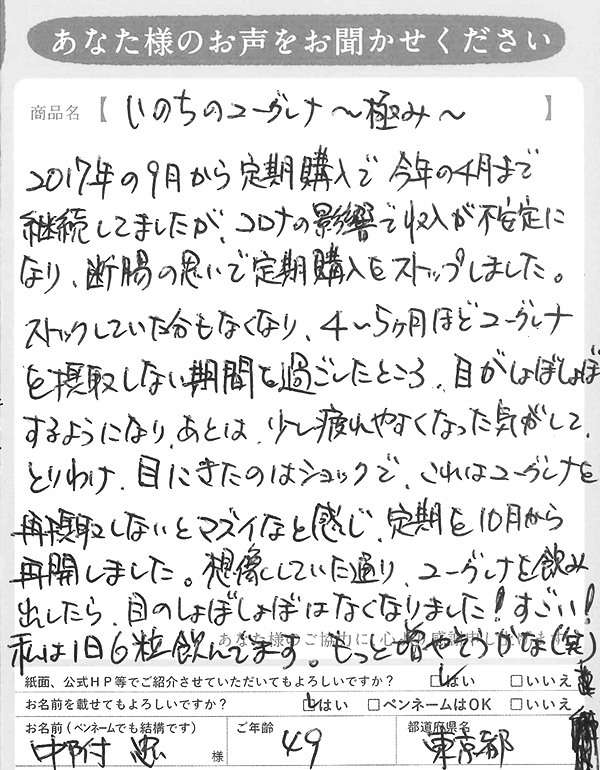 あなた様のお声をお聞かせください
商品名【 いのちのユーグレナ～極み～ 】
2017年の9月から定期購入で今年の4月まで
継続してましたが、コロナの影響で収入が不安定に
なり、断腸の思いで定期購入をストップしました。
ストックしていた分もなくなり、4～5ヶ月ほどユーグレナ
を摂取しない期間を過ごしたところ、目がしょぼしょぼ
するようになり、あとは、少し疲れやすくなった気がして、
とりわけ、目にきたのはショックで、これはユーグレナを
再摂取しないとマズイなと感じ、定期を10月から
再開しました。想像していた通り、ユーグレナを飲み
出したら、目のしょぼしょぼはなくなりました！すごい！
あなた様のご協力に、心より感謝申し上げます
私は1日6粒飲んでます。もっと増やそうかな（笑）
紙面、公式HP等でご紹介させていただいてもよろしいですか？ □はい □いいえ
お名前を載せてもよろしいですか？ □はい □ペンネームはOK □いいえ
お名前（ペンネームでも結構です） ご年齢 都道府県名
様 49 東京都